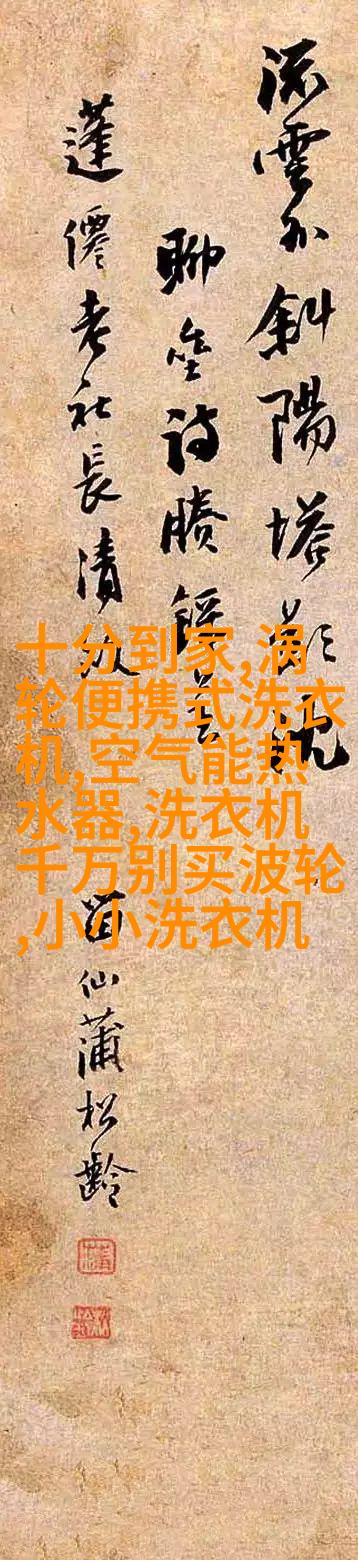 流雲外斜陽塔影
聊登詩勝
蓬僊老社長清
留仙蒲松齡
十分到家,涡
轮便携式洗衣
机,空气能热
水器,洗衣机
千万别买波轮
,小小洗衣机